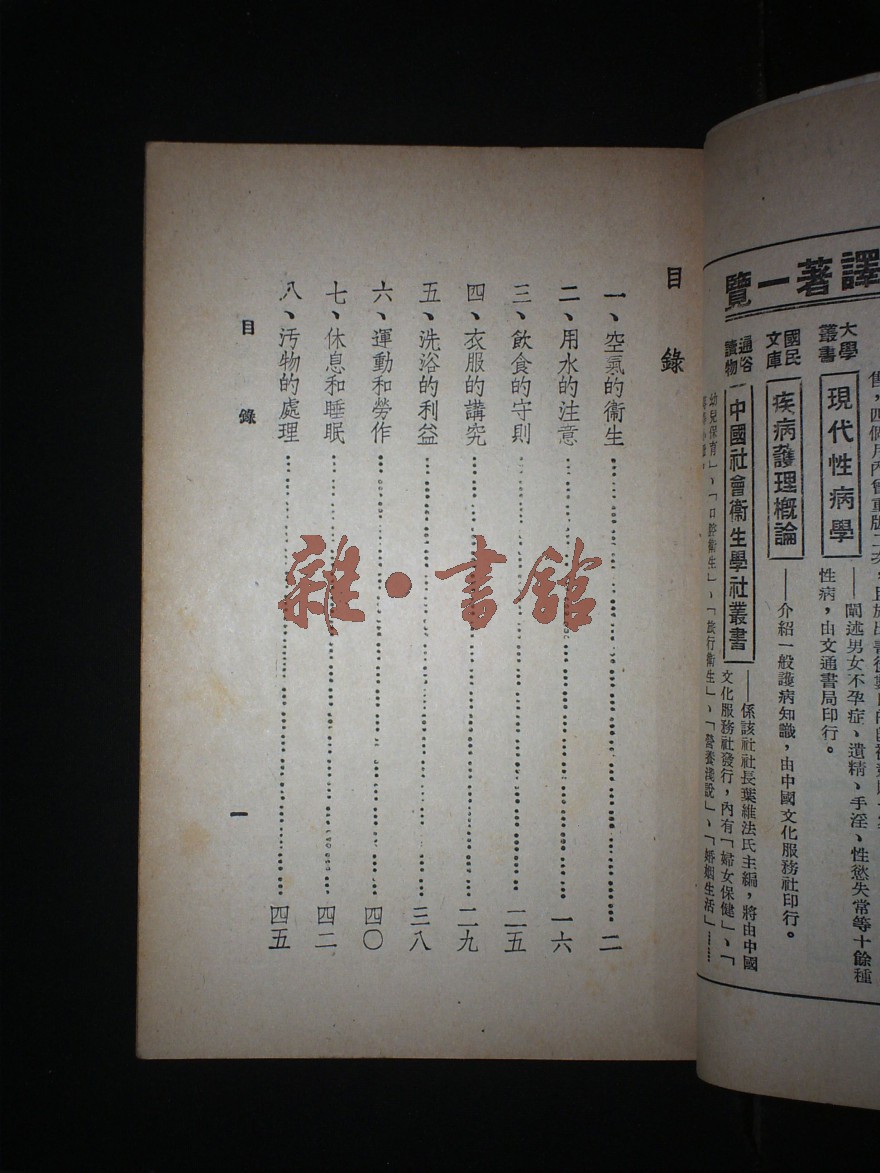 譯著一覽
大學叢書
現代性病學
——闡述男女不孕症、遺精、手淫、性慾失常等十餘種
性病，由文通書局印行。
國民文庫
疾病護理概論
——介紹一般護病知識，由中國文化服務社印行。
通俗讀物
中國社會衞生學社叢書
——係該社社長葉維法氏主編，將由中國
文化服務社發行，內有「婦女保健」、「
幼兒保育」、「口腔衞生」、「旅行衞生」、「營養淺說」、「婚姻生活」……
目錄
一、空氣的衞生……二
二、用水的注意……一六
三、飲食的守則……二五
四、衣服的講究……二九
五、洗浴的利益……三八
六、運動和勞作……四〇
七、休息和睡眠……四二
八、汚物的處理……四五
目錄
一
雜·書館